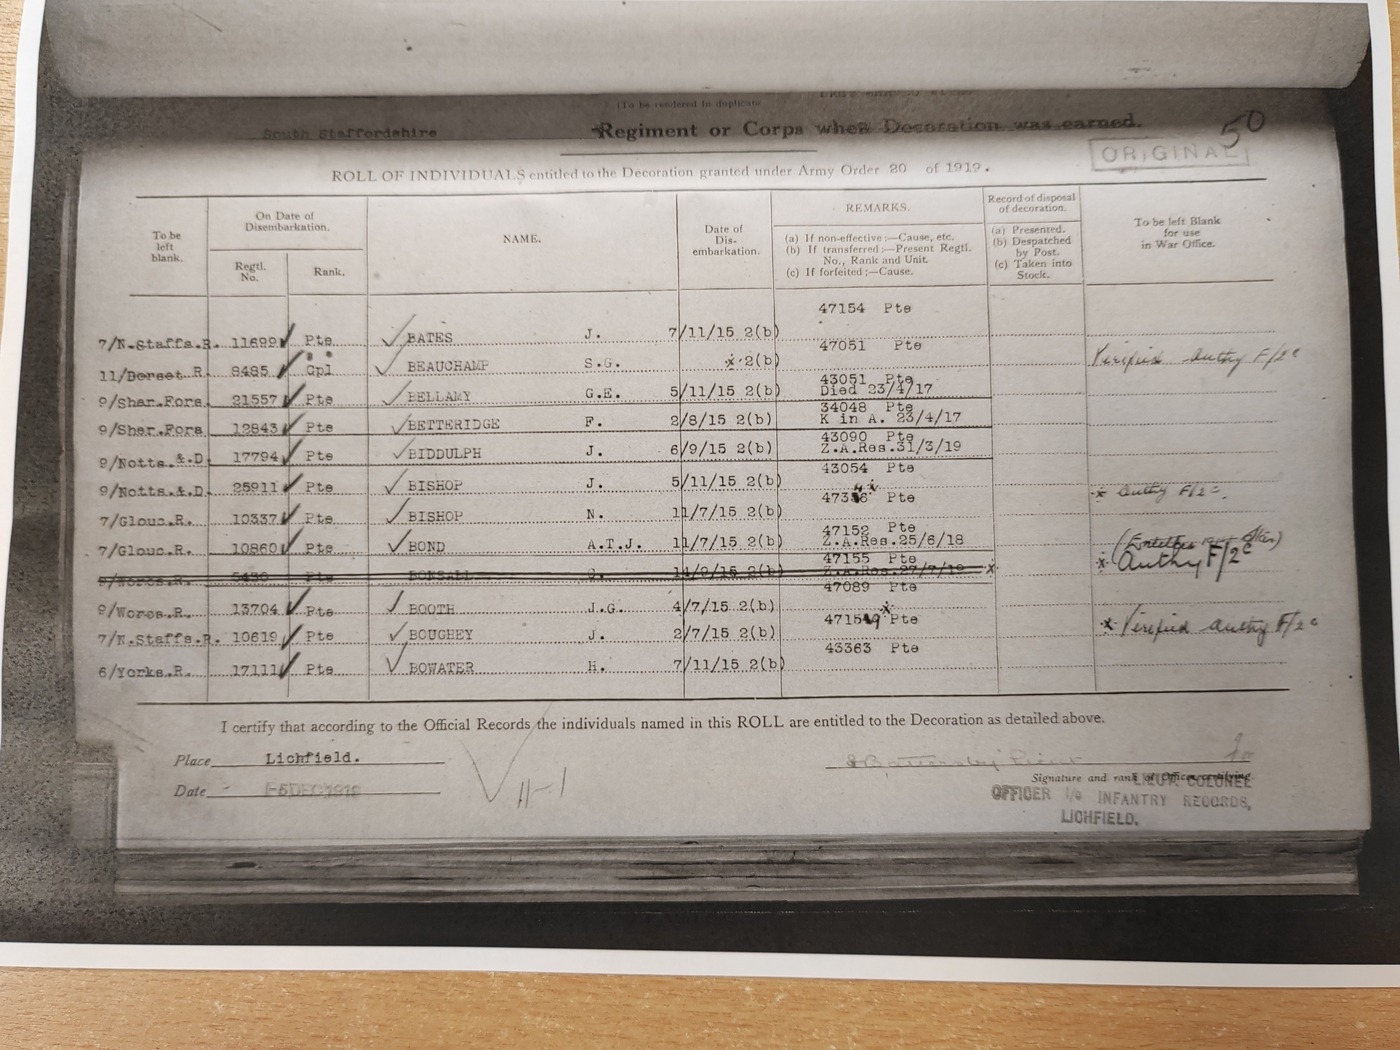 (To be rendered in duplicate
South Staffordshire Regiment or Corps when Decoration was earned.
50
ORIGINAL
ROLL OF INDIVIDUALS entitled to the Decoration granted under Army Order 20 of 1919.
To be left blank.
On Date of Disembarkation.
Regtl. No.
Rank.
NAME.
Date of Dis-embarkation.
REMARKS.
(a) If non-effective ;—Cause, etc.
(b) If transferred :—Present Regtl. No., Rank and Unit.
(c) If forfeited ;—Cause.
Record of disposal of decoration.
(a) Presented.
(b) Despatched by Post.
(c) Taken into Stock.
To be left Blank for use in War Office.
47154 Pte
7/N.Staffs.R. 11699 Pte BATES J. 7/11/15 2(b)
47051 Pte
11/Dorset R. 8485 Cpl BEAUCHAMP S.G. x 2(b) Verified Authy F/2c
43051 Pte
9/Sher.Fors 21557 Pte BELLAMY G.E. 5/11/15 2(b) Died 23/4/17
34048 Pte
9/Sher.Fors 12843 Pte BETTERIDGE F. 2/8/15 2(b) K in A. 23/4/17
43090 Pte
9/Notts.&.D. 17794 Pte BIDDULPH J. 6/9/15 2(b) Z.A.Res.31/3/19
43054 Pte
9/Notts.&.D. 25911 Pte BISHOP J. 5/11/15 2(b)
Pte x Authy F/2c.
7/Glouc.R. 10337 Pte BISHOP N. 11/7/15 2(b)
47152 Pte
7/Glouc.R. 10860 Pte BOND A.T.J. 11/7/15 2(b) Z.A.Res.25/6/18
47155 Pte x Authy F/2c
9/Worcs.R. 5430 Pte BONSALL G. 14/9/15 2(b) Z.A.Res.27/7/19 x
47089 Pte
9/Worcs.R. 13704 Pte BOOTH J.G. 4/7/15 2(b)
Pte x Verified Authy F/2c
7/N.Staffs.R. 10619 Pte BOUGHEY J. 2/7/15 2(b)
43363 Pte
6/Yorks.R. 17111 Pte BOWATER H. 7/11/15 2(b)
I certify that according to the Official Records the individuals named in this ROLL are entitled to the Decoration as detailed above.
Place Lichfield.
Signature and rank of Officer certifying.
Date DEC 1919
LIEUT. COLONEL
OFFICER I/c INFANTRY RECORDS,
LICHFIELD.